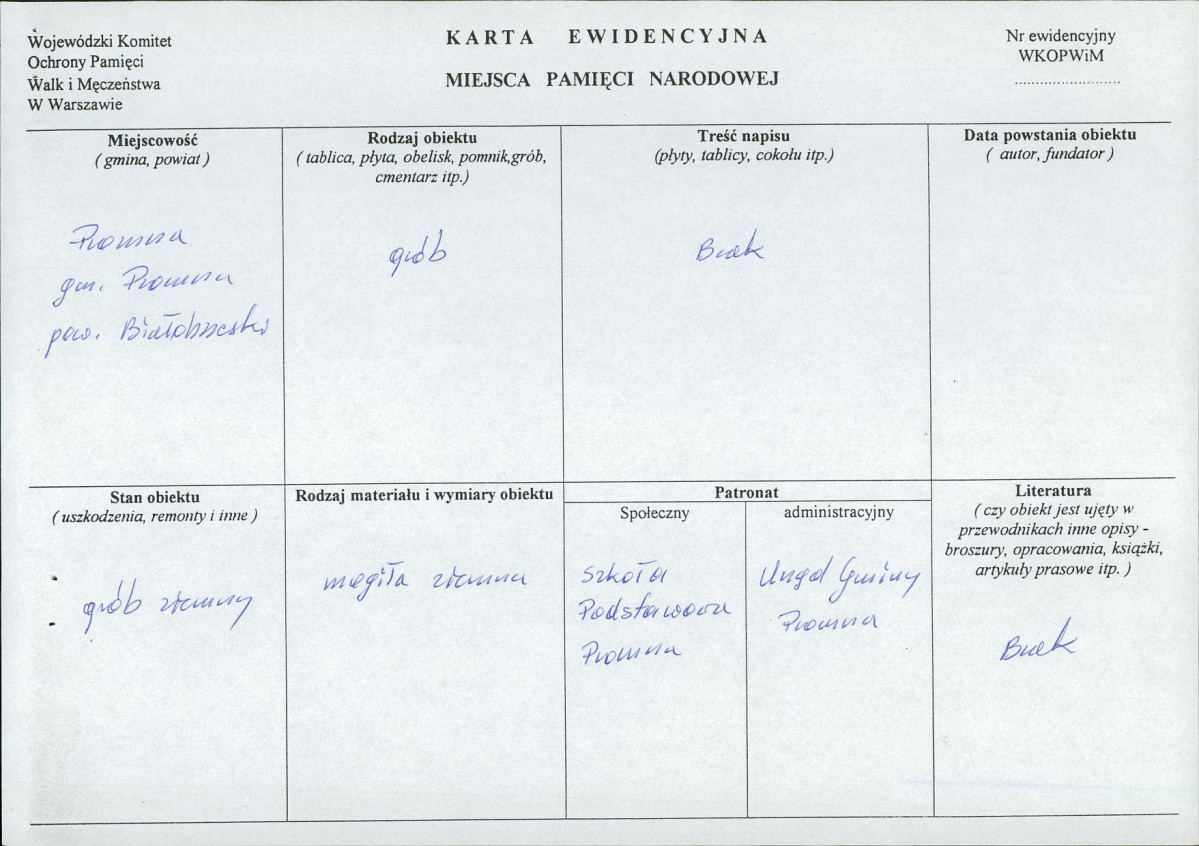 Wojewódzki Komitet
Ochrony Pamięci
Walk i Męczeństwa
W Warszawie
KARTA EWIDENCYJNA
MIEJSCA PAMIĘCI NARODOWEJ
Nr ewidencyjny
WKOPWiM
..........................
Miejscowość
( gmina, powiat )
Promna
gm. Promna
pow. Białobrzeski
Rodzaj obiektu
( tablica, płyta, obelisk, pomnik,grób,
cmentarz itp.)
grób
Treść napisu
(płyty, tablicy, cokołu itp.)
Brak
Data powstania obiektu
( autor, fundator )
Stan obiektu
( uszkodzenia, remonty i inne )
grób ziemny
Rodzaj materiału i wymiary obiektu
mogiła ziemna
Patronat
Społeczny
Szkoła
Podstawowa
Promna
administracyjny
Urząd Gminy
Promna
Literatura
( czy obiekt jest ujęty w
przewodnikach inne opisy -
broszury, opracowania, książki,
artykuły prasowe itp. )
Brak